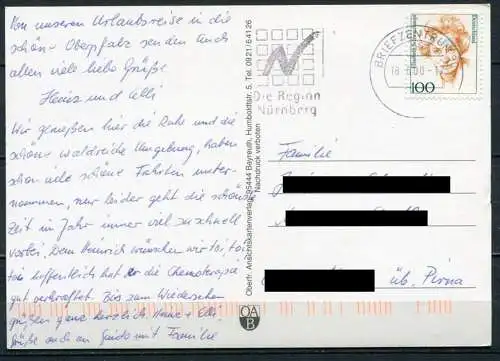 Von unserer Urlaubsreise in die
schöne Oberpfalz senden Euch
allen viele liebe Grüße
Heinz und Elli
Wir genießen hier die Ruhe und die
schöne waldreiche Umgebung, haben
schon viele schöne Fahrten unter-
nommen, nur leider geht die schöne
Zeit im Jahr immer viel zu schnell
vorbei. Dem Heinrich wünschen wir
hoffentlich hat er die Chemoterapie
gut verkraftet. Bis zum Wiedersehen
grüßen ganz herzlich Heinz + Elli.
Grüße auch an Guido mit Familie
Oberfr. Ansichtskartenverlag, 95444 Bayreuth, Humboldtstr. 5, Tel. 0921/64126
Nachdruck verboten
OA
B
N
Die Region
Nürnberg
BRIEFZENTRUM
18
00-12
100
Familie
üb. Pirna